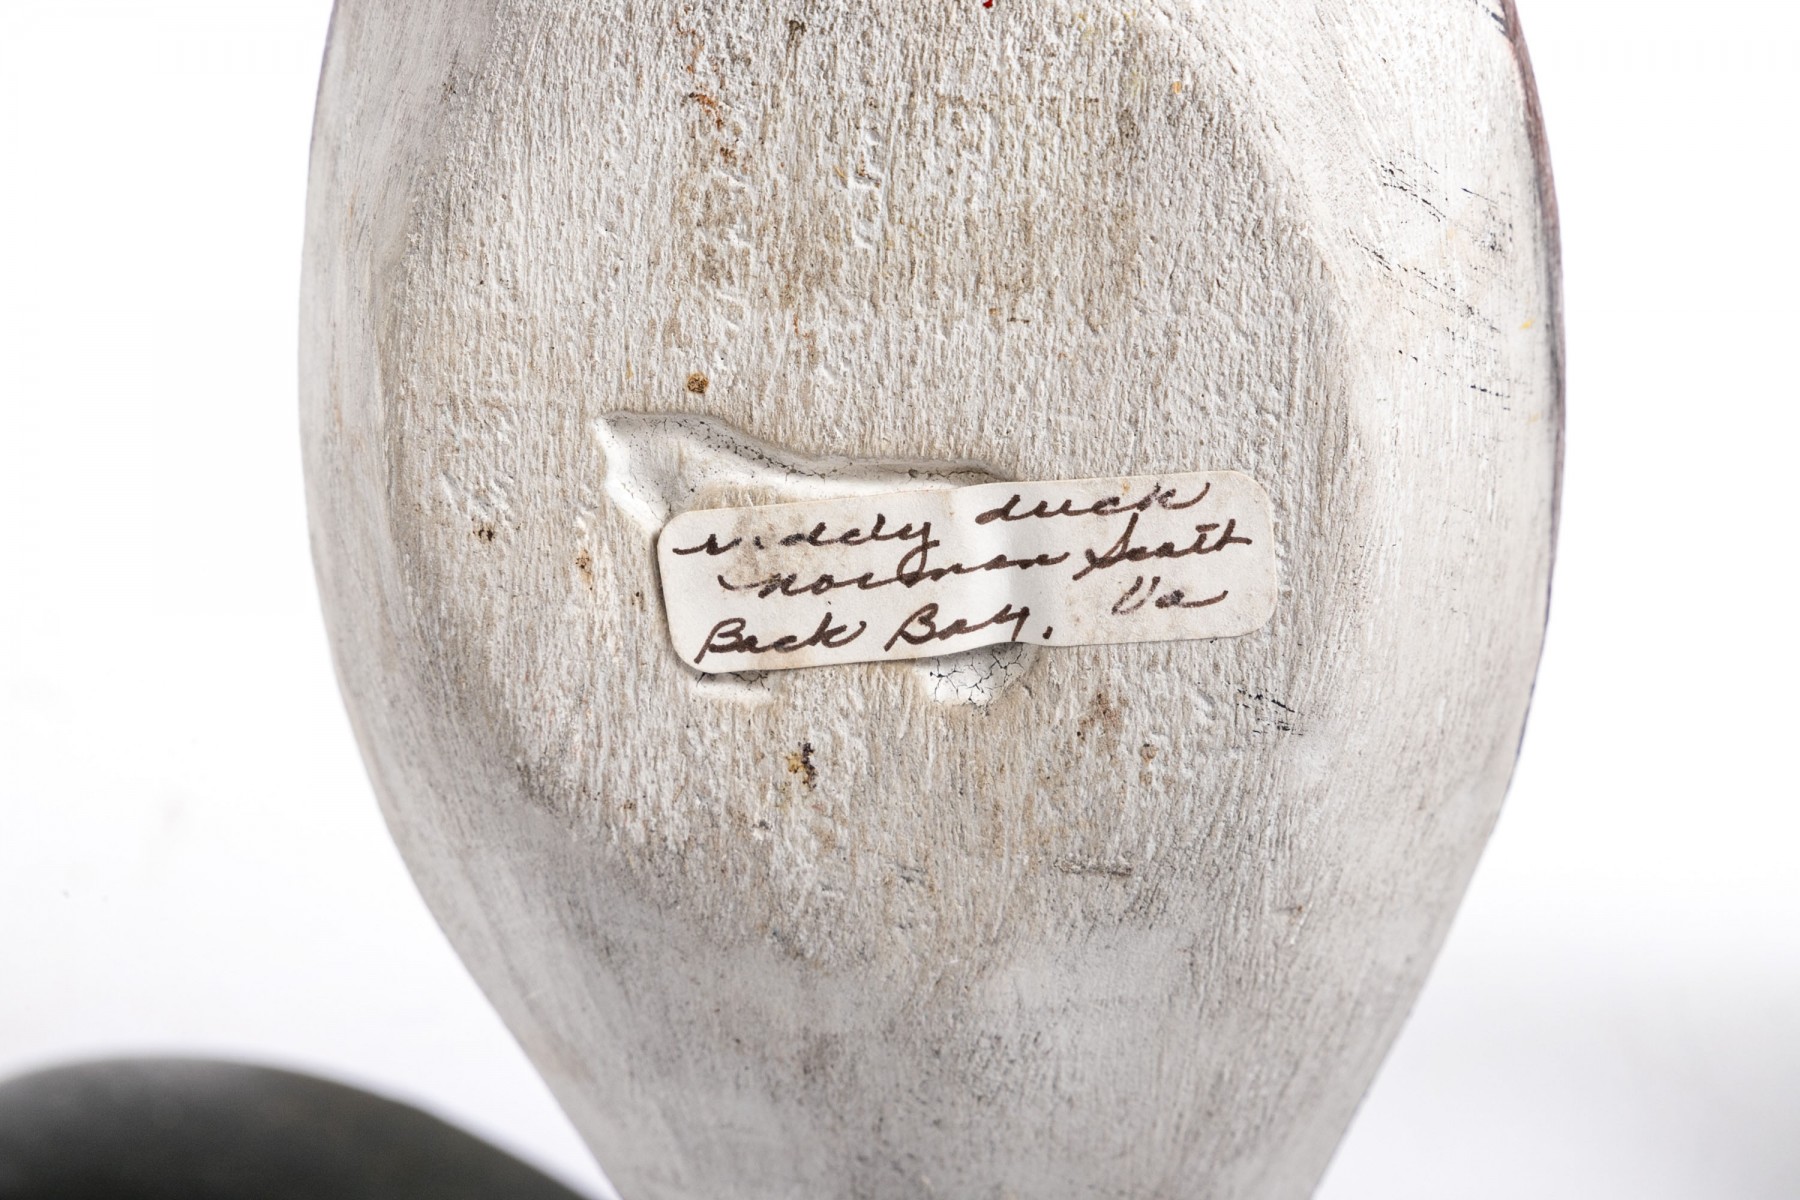 ruddy duck
Norman Scott
Back Bay, Va